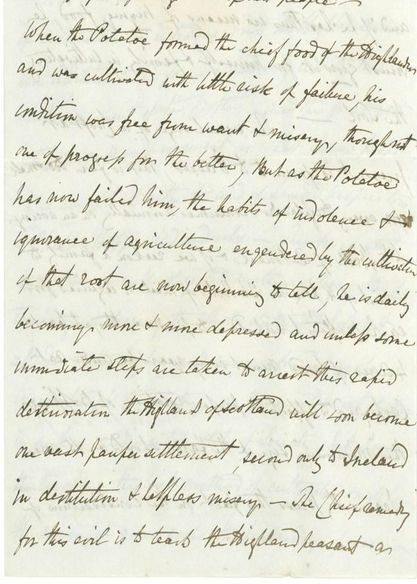 people
When the Potatoe formed the chief food of the Highlander
and was cultivated with little risk of failure, his
condition was free from want & misery, though not
one of progress for the better, But as the Potatoe
has now failed him, the habits of indolence &
ignorance of agriculture engendered by the cultivation
of that root are now beginning to tell, he is daily
becoming more & more depressed and unless some
immediate steps are taken to arrest this rapid
deterioration the Highlands of Scotland will soon become
one vast pauper settlement, second only to Ireland
in destitution & helpless misery — The Chief remedy
for this evil is to teach the Highland peasant as